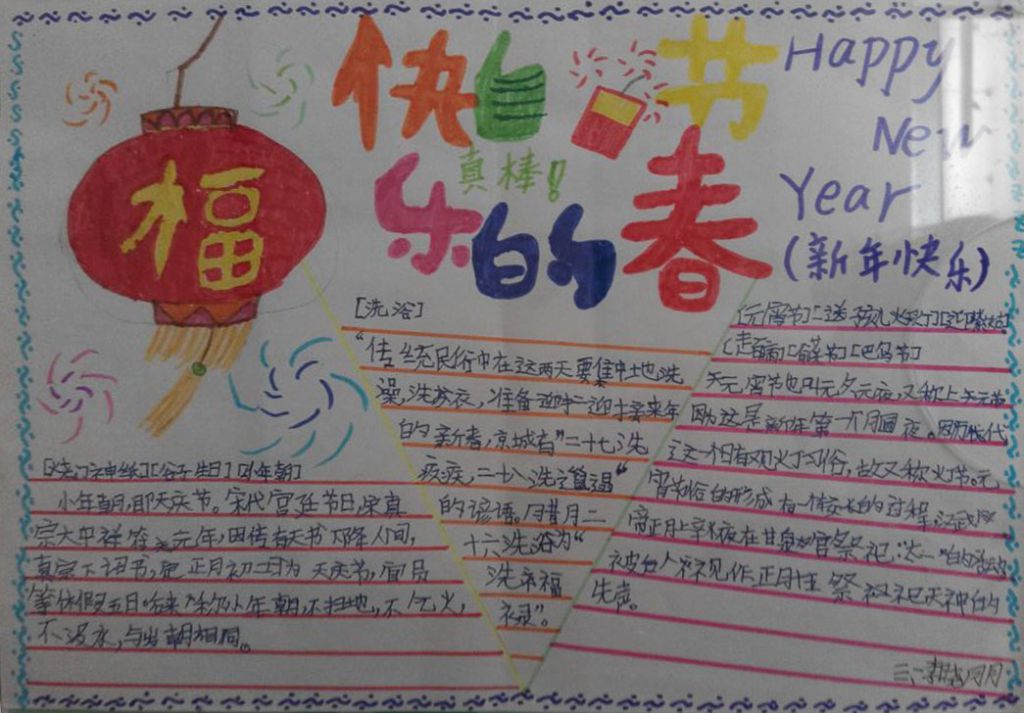 福
快 节
真棒!
乐的春
Happy
New
Year
(新年快乐)
[洗浴]
"传统民俗中在这两天要集中地洗
澡,洗衣,准备迎来年
的新春,京城有"二十七洗
疚疾,二十八洗邋遢"
的谚语。腊月二
十六洗浴为"
洗福
禄"。
[烧门神纸][谷子生日][小年朝]
小年朝,即天庆节。宋代宫廷节日,宋真
宗大中祥符元年,因传有天书下降人间,
真宗下诏书,定正月初三日为天庆节,官员
等休假五日。后来称小年朝,不扫地,不乞火,
不汲水,与岁朝相同。
[元宵节][送孩儿灯][迎紫姑]
[走百病]
元宵节也叫元夕元夜,又称上元节
因为这是新年第一个月圆夜。因历代
这一日有观灯习俗,故又称灯节。元
宵节俗的形成有一个较长的过程,汉武帝
正月上辛夜在甘泉宫祭祀"太一"的活动
被后人视作正月祭祀天神的
先声。